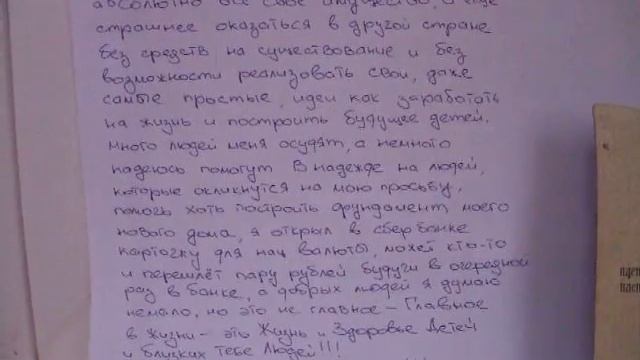 абсолютно все свое имущество, а ещё
страшнее оказаться в другой стране
без средств на существование и без
возможности реализовать свои, даже
самые простые, идеи как заработать
на жизнь и построить будущее детей.
Много людей меня осудят, а немного
надеюсь помогут. В надежде на людей,
которые окликнутся на мою просьбу,
помочь хоть построить фундамент моего
нового дома, я открыл в сбербанке
карточку для нац валюты, может кто-то
и перешлёт пару рублей будучи в очередной
раз в банке, а добрых людей я думаю
немало, но это не главное – Главное
в жизни – это Жизнь и Здоровье Детей
и близких тебе людей!!!